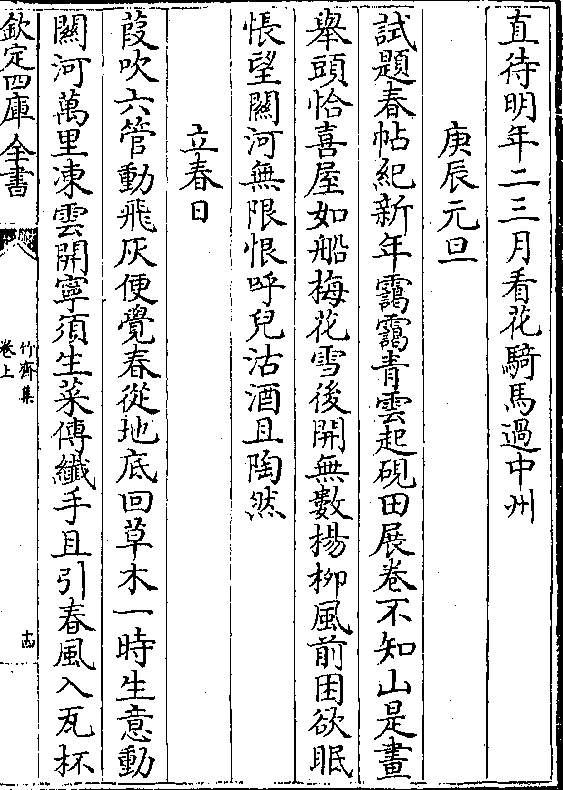 直待明年二三月看花騎馬過中州
庚辰元旦
試題春帖紀新年靄靄青雲起硯田展卷不知山是畫
舉頭恰喜屋如船梅花雪後開無數揚栁風前困欲眠
悵望關河無限恨呼兒沽酒且陶然
立春日
葭吹六管動飛灰便覺春從地底回草木一時生意動
關河萬里凍雲開寧須生菜傳纖手且引春風入瓦杯
欽定四庫全書
竹齋集
卷上
十四